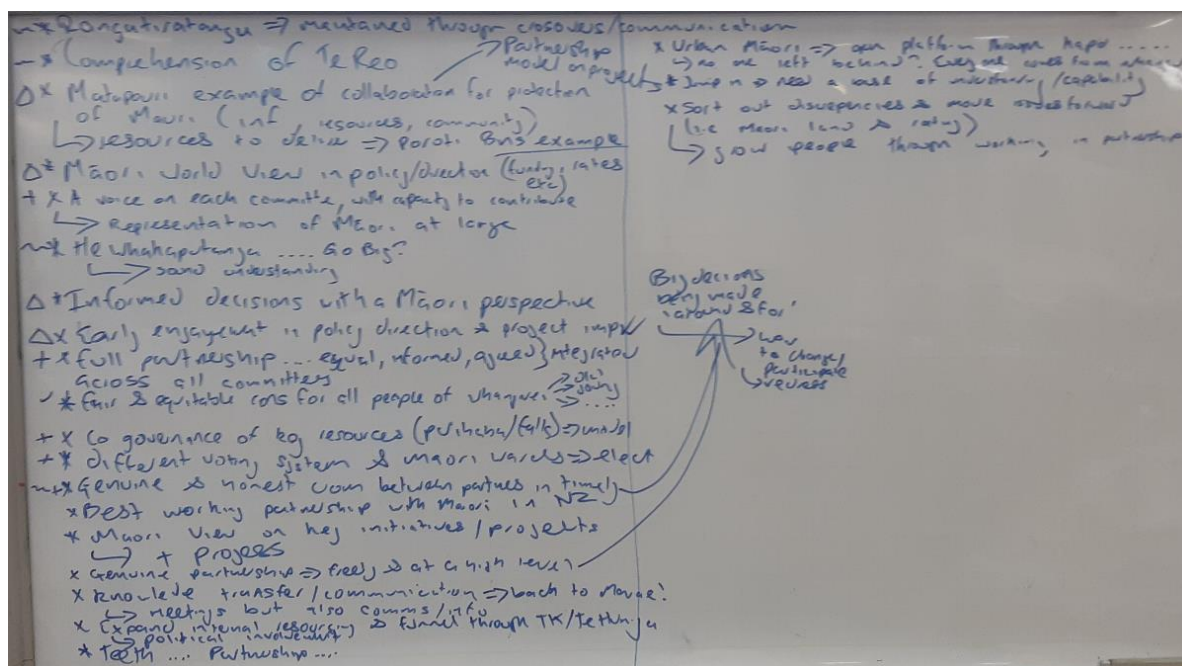 ~* Rangatiratanga => mentained through crosovers/communication
~* Comprehension of Te Reo
Partnership
model on projects
Δ* Matapouri example of collaboration for protection
of Maori (inf, resources, community)
↳ resources to deliver => poroti. Bns example
Δ* Māori world view in policy/direction (funding, rates
etc)
+ * A voice on each committe, with capacity to contribute
↳ Representation of Māori at large
~* He Whakaputanga .... Go Big?
↳ sound understanding
Δ* Informed decisions with a Māori perspective
Δ* Early engayement in policy direction & project impl
+ * full partnership ... equal, informed, agreed} integration
across all committers
✓ * fair & equitable cons for all people of whangarei => old
=> young
=> ....
+ * Co governance of key resources => model
+ * different voting system & maori wards => elect
~+* Genuine & honest com between partnes in timely
* Best working partnership with maori in NZ
* Maori view on key initiatives/projects
↳ + progess
* Genuine partnership => freely & at a high level
* knowlede transfer/communication => back to Marae?
↳ meetings but also comms/info
* Expand internal resourcing & funnel through TK/
↳ political involvement
* Teeth .... Partnership ....
* Urban Māori => own platform through hapū .....
↳ no one left behind? Everyone comes from
* Jump n => need a base of understanding/capability
* Sort out discrepencies & move forward
(i.e Maori land & rating)
↳ grow people through working in partnership
Big decions
being made
'around & for'
→ how
to change/
participate
↳ redress